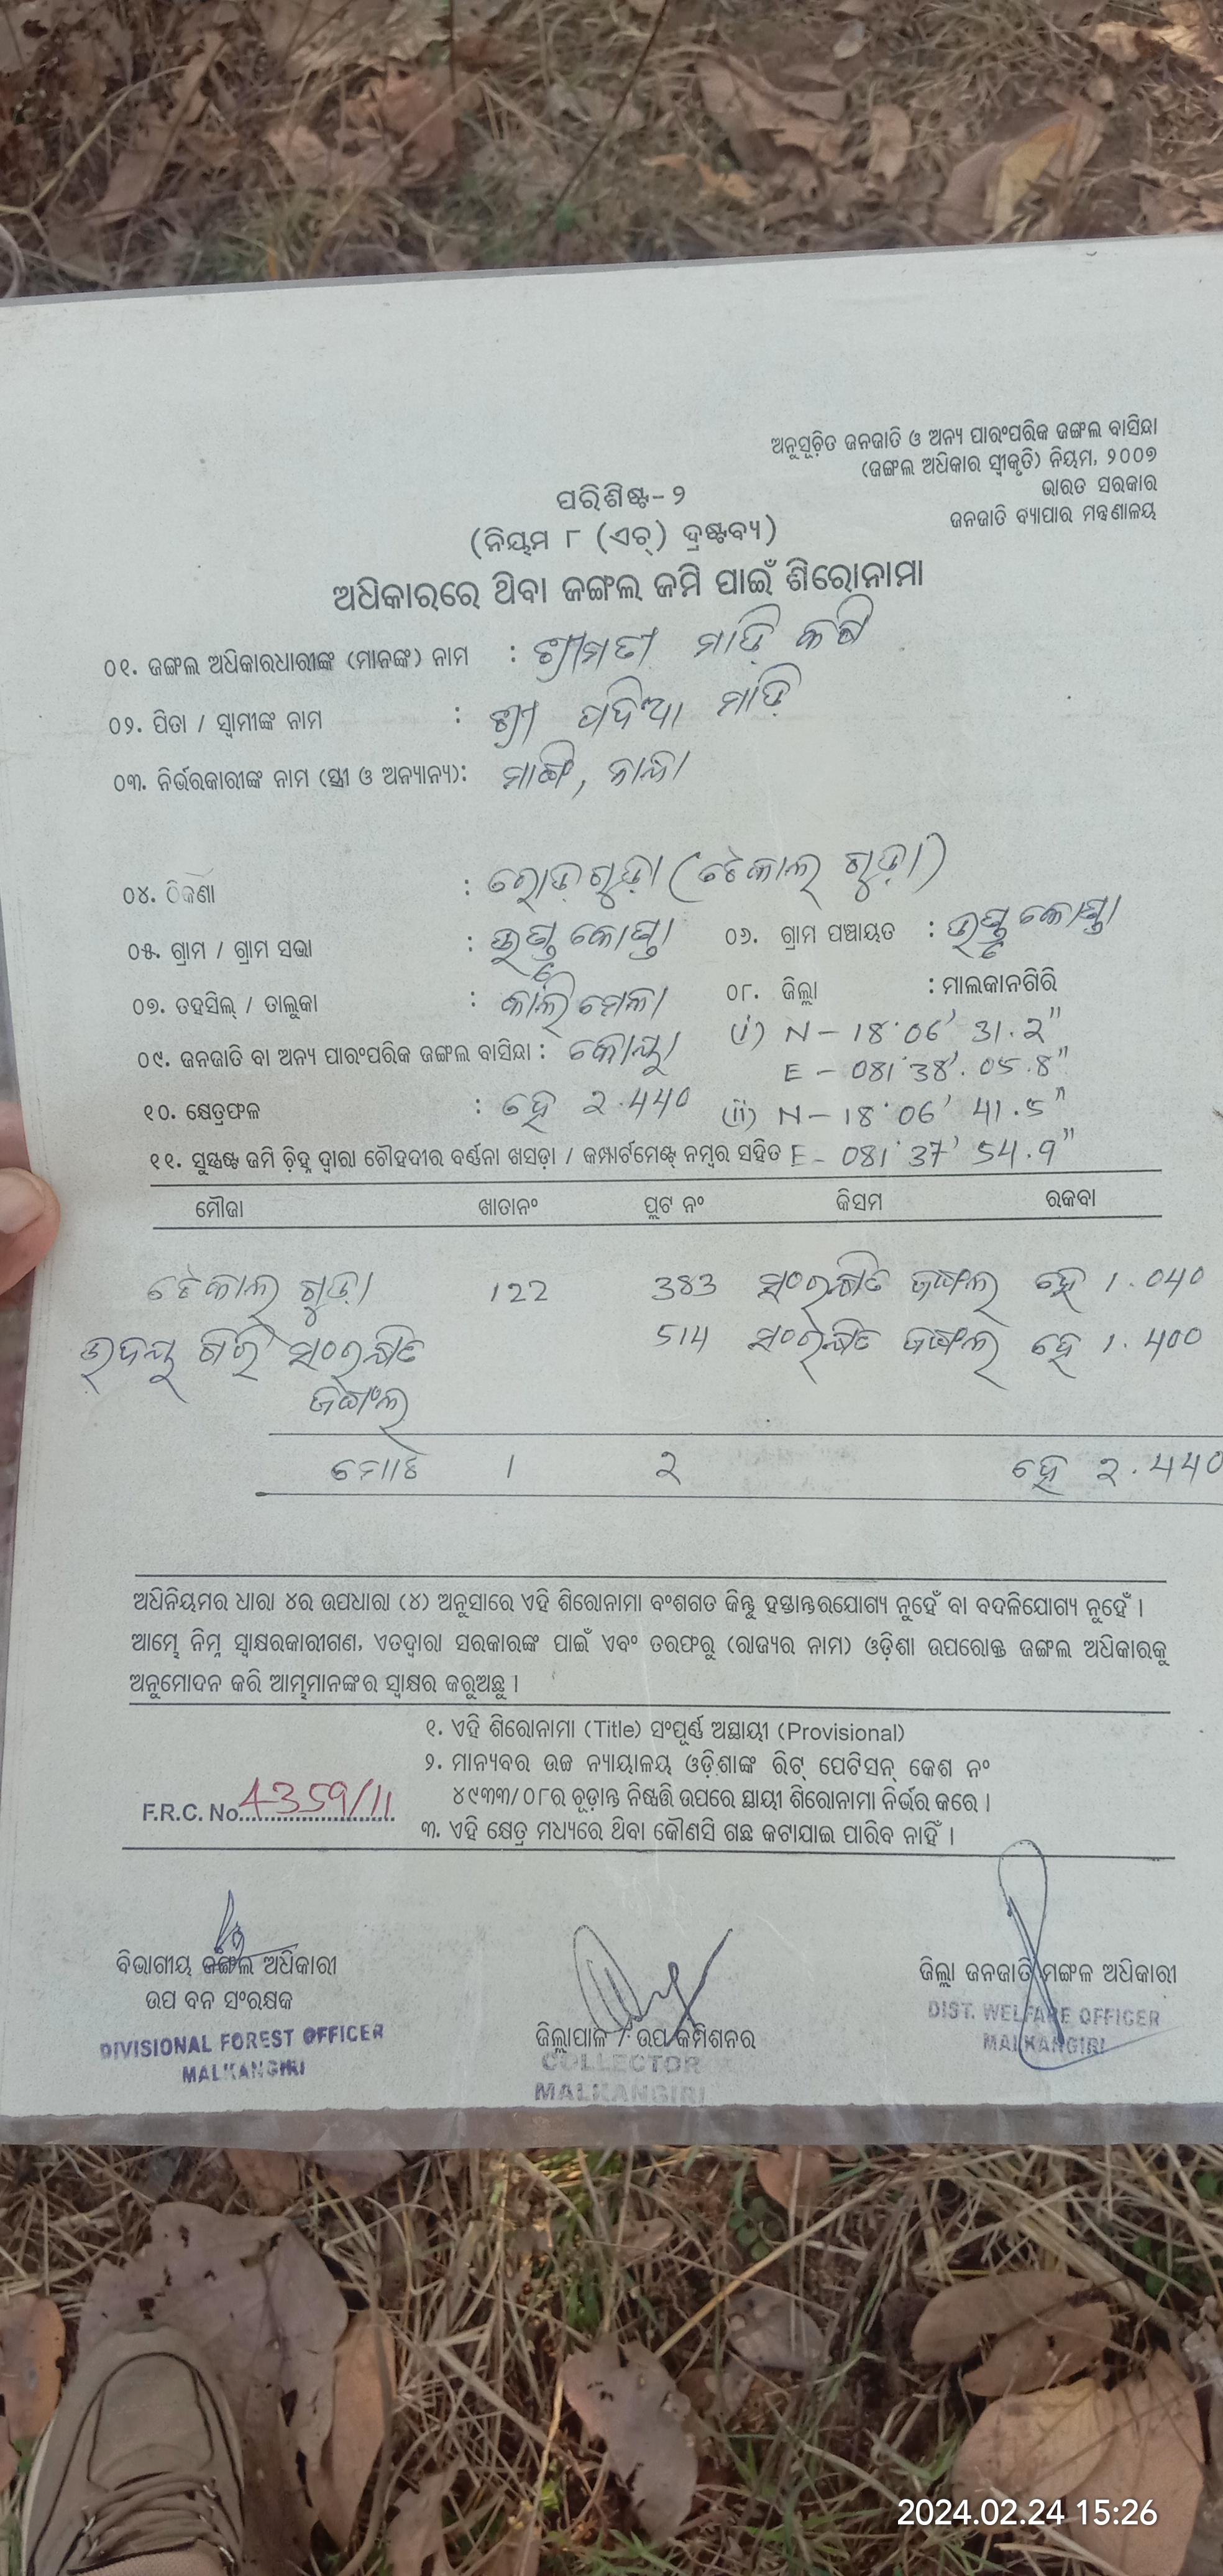 ଅନୁସୂଚିତ ଜନଜାତି ଓ ଅନ୍ୟ ପାରଂପରିକ ଜଙ୍ଗଲ ବାସିନ୍ଦା
(ଜଙ୍ଗଲ ଅଧିକାର ସ୍ୱୀକୃତି) ନିୟମ, ୨୦୦୭
ଭାରତ ସରକାର
ଜନଜାତି ବ୍ୟାପାର ମନ୍ତ୍ରଣାଳୟ
ପରିଶିଷ୍ଟ-୨
(ନିୟମ ୮ (ଏଚ୍) ଦ୍ରଷ୍ଟବ୍ୟ)
ଅଧିକାରରେ ଥିବା ଜଙ୍ଗଲ ଜମି ପାଇଁ ଶିରୋନାମା
୦୧. ଜଙ୍ଗଲ ଅଧିକାରଧାରୀଙ୍କ (ମାନଙ୍କ) ନାମ : ଶ୍ରୀମତୀ ମାଡ଼ି
୦୨. ପିତା / ସ୍ୱାମୀଙ୍କ ନାମ : ଶ୍ରୀ ପଦିଆ ମାଡ଼ି
୦୩. ନିର୍ଭରକାରୀଙ୍କ ନାମ (ସ୍ତ୍ରୀ ଓ ଅନ୍ୟାନ୍ୟ):
୦୪. ଠିକଣା : ରୋଡ଼ଗୁଡ଼ା (ଟେକାଲ୍ ଗୁଡ଼ା)
୦୫. ଗ୍ରାମ / ଗ୍ରାମ ସଭା : ୦୬. ଗ୍ରାମ ପଞ୍ଚାୟତ :
୦୭. ତହସିଲ୍ / ତାଲୁକା : କାଲିମେଳା ୦୮. ଜିଲ୍ଲା : ମାଲକାନଗିରି
(i) N - 18°06' 31.2"
୦୯. ଜନଜାତି ବା ଅନ୍ୟ ପାରଂପରିକ ଜଙ୍ଗଲ ବାସିନ୍ଦା : କୋୟା E - 081°38'. 05.8"
୧୦. କ୍ଷେତ୍ରଫଳ : ହେ 2.440 (ii) N - 18°06' 41.5"
୧୧. ସୁସ୍ପଷ୍ଟ ଜମି ଚିହ୍ନ ଦ୍ୱାରା ଚୌହଦୀର ବର୍ଣ୍ଣନା ଖସଡ଼ା / କମ୍ପାର୍ଟମେଣ୍ଟ୍ ନମ୍ବର ସହିତ E - 081°37' 54.9"
ମୌଜା ଖାତାନଂ ପ୍ଲଟ ନଂ କିସମ ରକବା
ଟେକାଲ୍ ଗୁଡ଼ା 122 383 ସଂରକ୍ଷିତ ଜଙ୍ଗଲ ହେ 1.040
ଉଦୟ ଗିରି ସଂରକ୍ଷିତ 514 ସଂରକ୍ଷିତ ଜଙ୍ଗଲ ହେ 1.400
ଜଙ୍ଗଲ
ମୋଟ 1 2 ହେ 2.440
ଅଧିନିୟମର ଧାରା ୪ର ଉପଧାରା (୪) ଅନୁସାରେ ଏହି ଶିରୋନାମା ବଂଶଗତ କିନ୍ତୁ ହସ୍ତାନ୍ତରଯୋଗ୍ୟ ନୁହେଁ ବା ବଦଳିଯୋଗ୍ୟ ନୁହେଁ ।
ଆମ୍ଭେ ନିମ୍ନ ସ୍ୱାକ୍ଷରକାରୀଗଣ, ଏତଦ୍ୱାରା ସରକାରଙ୍କ ପାଇଁ ଏବଂ ତରଫରୁ (ରାଜ୍ୟର ନାମ) ଓଡ଼ିଶା ଉପରୋକ୍ତ ଜଙ୍ଗଲ ଅଧିକାରକୁ
ଅନୁମୋଦନ କରି ଆମ୍ଭମାନଙ୍କର ସ୍ୱାକ୍ଷର କରୁଅଛୁ ।
୧. ଏହି ଶିରୋନାମା (Title) ସଂପୂର୍ଣ୍ଣ ଅସ୍ଥାୟୀ (Provisional)
୨. ମାନ୍ୟବର ଉଚ୍ଚ ନ୍ୟାୟାଳୟ ଓଡ଼ିଶାଙ୍କ ରିଟ୍ ପେଟିସନ୍ କେଶ ନଂ
୪୯୩୩/୦୮ର ଚୂଡ଼ାନ୍ତ ନିଷ୍ପତ୍ତି ଉପରେ ସ୍ଥାୟୀ ଶିରୋନାମା ନିର୍ଭର କରେ ।
F.R.C. No. 4359/11
୩. ଏହି କ୍ଷେତ୍ର ମଧ୍ୟରେ ଥିବା କୌଣସି ଗଛ କଟାଯାଇ ପାରିବ ନାହିଁ ।
ବିଭାଗୀୟ ଜଙ୍ଗଲ ଅଧିକାରୀ
ଉପ ବନ ସଂରକ୍ଷକ
DIVISIONAL FOREST OFFICER
MALKANGIRI
ଜିଲ୍ଲାପାଳ / ଉପ କମିଶନର
COLLECTOR
MALKANGIRI
ଜିଲ୍ଲା ଜନଜାତି ମଙ୍ଗଳ ଅଧିକାରୀ
DIST. WELFARE OFFICER
MALKANGIRI
2024.02.24 15:26